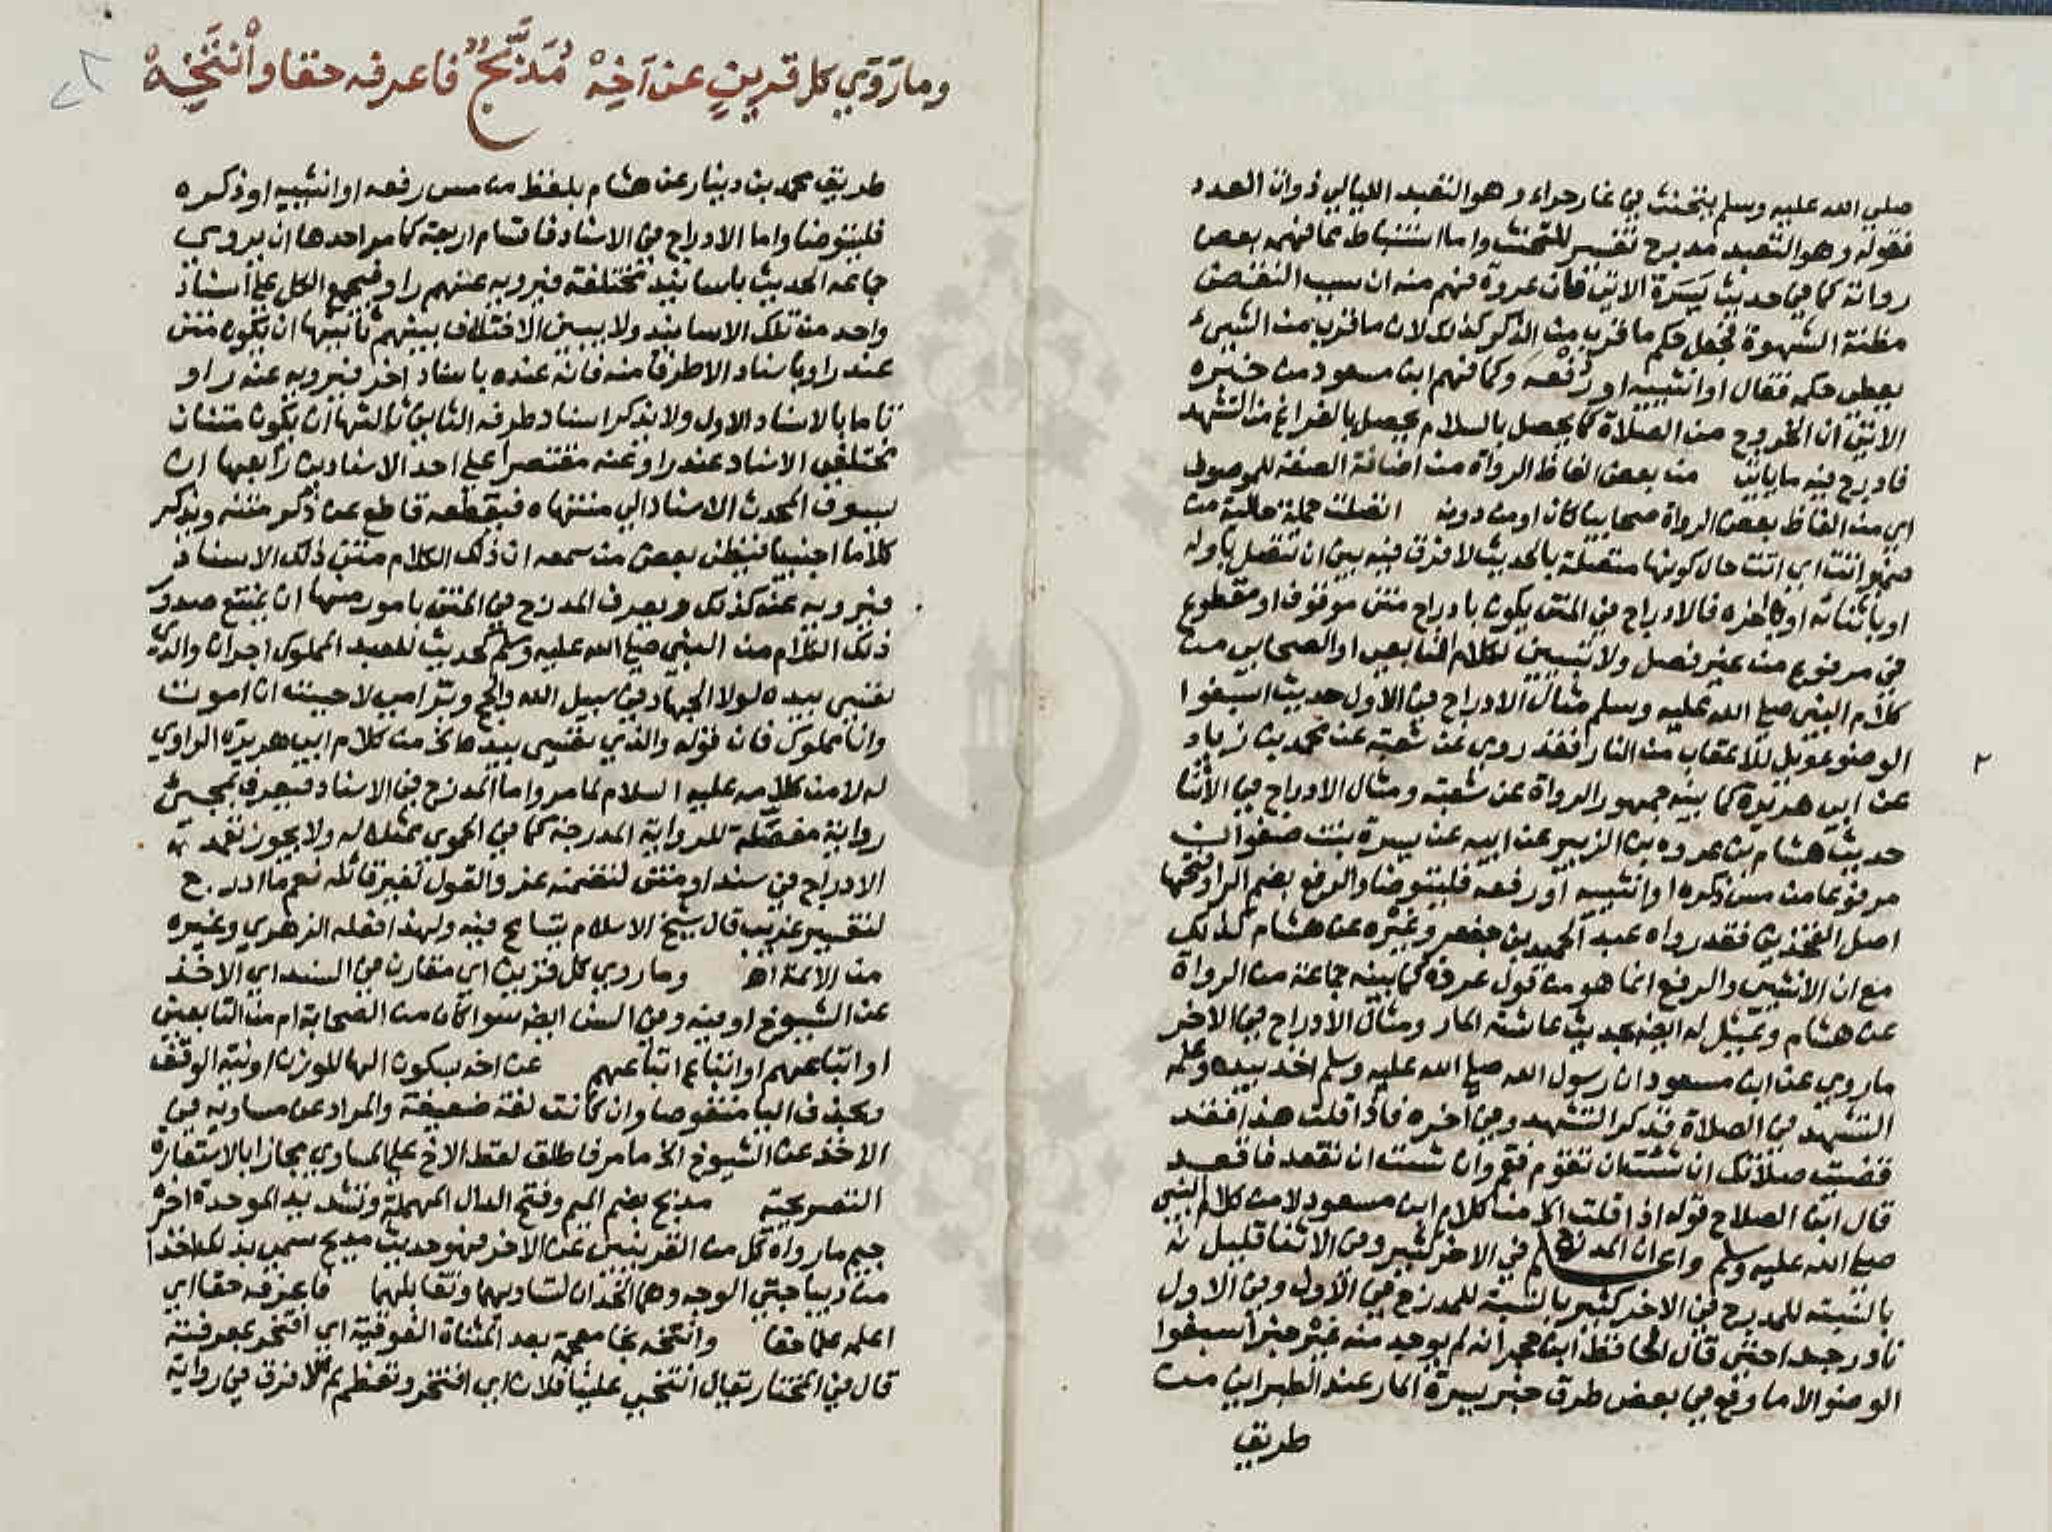 صلي الله عليه وسلم يتحنث في غار حراء وهو التعبد الليالي ذوات العدد
فقوله وهو التعبد مدرج تفسير للتحنث واما استنباط مما فهمه بعض
رواته كما في حديث بسرة الاتي فان عروة فهم منه ان سبب النقض
مظنة الشهوة فجعل حكم ما قرب من الذكر كذلك لان ما قرب من الشيء
يعطي حكمه فقال او انثييه او رُفْغه وكما فهم ابن مسعود من خبره
الاتي ان الخروج من الصلاة كما يحصل بالسلام يحصل بالفراغ من التشهد
فادرج فيه ما ياتي من بعض الفاظ الرواة من اضافة الصفة للموصوف
اي من الفاظ بعض الرواة صحابيا كان او من دونه اتصلت جملة حالية من
اتت اي اتت حال كونها متصلة بالحديث لا فرق فيه بين ان تتصل باوله
او باثنائه او باخره فالادراج في المتن يكون بادراج متن موقوف او مقطوع
في مرفوع من غير فصل ولا تبيين لكلام التابعي او الصحابي من
كلام النبي صلي الله عليه وسلم مثال الادراج في الاول حديث اسبغوا
الوضو ويل للاعقاب من النار فقد روي عن شعبة عن محمد بن زياد
عن ابي هريرة كما بينه جمهور الرواة عن شعبة ومثال الادراج في الاثنا
حديث هشام بن عروه بن الزبير عن ابيه عن بسرة بنت صفوان
مرفوعا من مس ذكره او انثييه او رفغه فليتوضا والرفغ بضم الرا وفتحها
اصل الفخذين فقد رواه عبد الحميد بن جعفر وغيره عن هشام كذلك
مع ان الانثيين والرفغ انما هو من قول عروة كما بينه جماعة من الرواة
عن هشام ويمثل له ايضا بحديث عائشة المار ومثال الادراج في الاخر
ما روي عن ابن مسعود ان رسول الله صلي الله عليه وسلم اخذ بيده وعلمه
التشهد في الصلاة فذكر التشهد وفي اخره فاذا قلت هذا فقد
قضيت صلاتك ان شئت ان تقوم فقم وان شئت ان تقعد فاقعد
قال ابن الصلاح قوله اذا قلت الخ من كلام ابن مسعود لا من كلام النبي
صلي الله عليه وسلم واعلم ان المدرج في الاخر كثير وفي الاثنا قليل
بالنسبة للمدرج في الاخر كثير بالنسبة للمدرج في الاول وفي الاول
نادر جدا حتي قال الحافظ ابن حجر انه لم يوجد منه غير خبر اسبغوا
الوضو الا ما وقع في بعض طرق خبر بسرة المار عند الطبراني من
طريق
٢
وما رَوَي كل قرينٍ عن اَخِهْ مُدَبَّجٌ فاعرفه حقا وانتَخِهْ
طريق محمد بن دينار عن هشام بلفظ من مس رفغه او انثييه او ذكره
فليتوضا واما الادراج في الاسناد فاقسام اربعة كما مر احدها ان يروي
جماعة الحديث باسانيد مختلفة فيرويه عنهم راو فيجمع الكل علي اسناد
واحد من تلك الاسانيد ولا يبين الاختلاف بينهم ثانيها ان يكون متن
عند راو باسناد الا طرفا منه فانه عنده باسناد اخر فيرويه عنه راو
تاما بالاسناد الاول ولا يذكر اسناد طرفه الثاني ثالثها ان يكون متنان
مختلفي الاسناد عند راو عنه مقتصرا علي احد الاسنادين رابعها ان
يسوق المحدث الاسناد الي منتهاه فيقطعه قاطع عن ذكر متنه ويذكر
كلاما اجنبيا فيظن بعض من سمعه ان ذلك الكلام متن ذلك الاسناد
فيرويه عنه كذلك ويعرف المدرج في المتن بامور منها ان يمتنع صدور
ذلك الكلام من النبي صلي الله عليه وسلم كحديث للعبد المملوك اجران والذي
نفسي بيده لولا الجهاد في سبيل الله والحج وبر امي لاحببت ان اموت
وانا مملوك فان قوله والذي نفسي بيده الخ من كلام ابي هريرة الراوي
له لا من كلامه عليه السلام لما مر واما المدرج في الاسناد فيعرف بمجئ
رواية مفصّلة للرواية المدرجة كما في الحموي ممثلا له ولا يجوز تعمد
الادراج في سند او متن لتضمنه عزو القول لغير قائله نعم ما ادرج
لتفسير غريب قال شيخ الاسلام يتسامح فيه ولهذا فعله الزهري وغيره
من الائمة اهـ وما روي كل قرين اي مقارن في السند اي الاخذ
عن الشيوخ او فيه وفي السن ايضا سوا كان من الصحابة ام من التابعين
او اتباعهم او اتباع اتباعهم عن اخه بسكون الها للوزن او نية الوقف
وبحذف اليا منقوصا وان كانت لغة ضعيفة والمراد عن مساويه في
الاخذ عن الشيوخ الخ ما مر فاطلق لفظ الاخ علي المساوي مجازا بالاستعارة
التصريحية مدبج بضم الميم وفتح الدال المهملة وتشديد الموحدة اخره
جيم ما رواه كل من القرينين عن الاخر فهو حديث مدبج سمي بذلك اخذا
من ديباجتي الوجه وهما الخدان لتساويهما وتقابلهما فاعرفه حقا اي
اعلمه علما حقا وانتخه بخا معجمة بعد المثناة الفوقية اي افتخر بمعرفته
قال في المختار يقال انتخي علينا فلان اي افتخر وتعظم ثم لا فرق في رواية